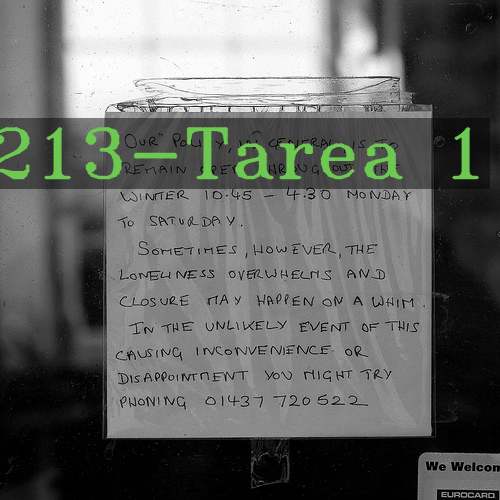 "OUR" POLICY, IN GENERAL, IS TO
REMAIN OPEN THROUGHOUT THE
213-Tarea 1
WINTER 10.45 - 4.30 MONDAY
TO SATURDAY.
SOMETIMES, HOWEVER, THE
LONELINESS OVERWHELMS AND
CLOSURE MAY HAPPEN ON A WHIM.
IN THE UNLIKELY EVENT OF THIS
CAUSING INCONVENIENCE OR
DISAPPOINTMENT YOU MIGHT TRY
PHONING 01437 720522
We Welcom
EUROCARD